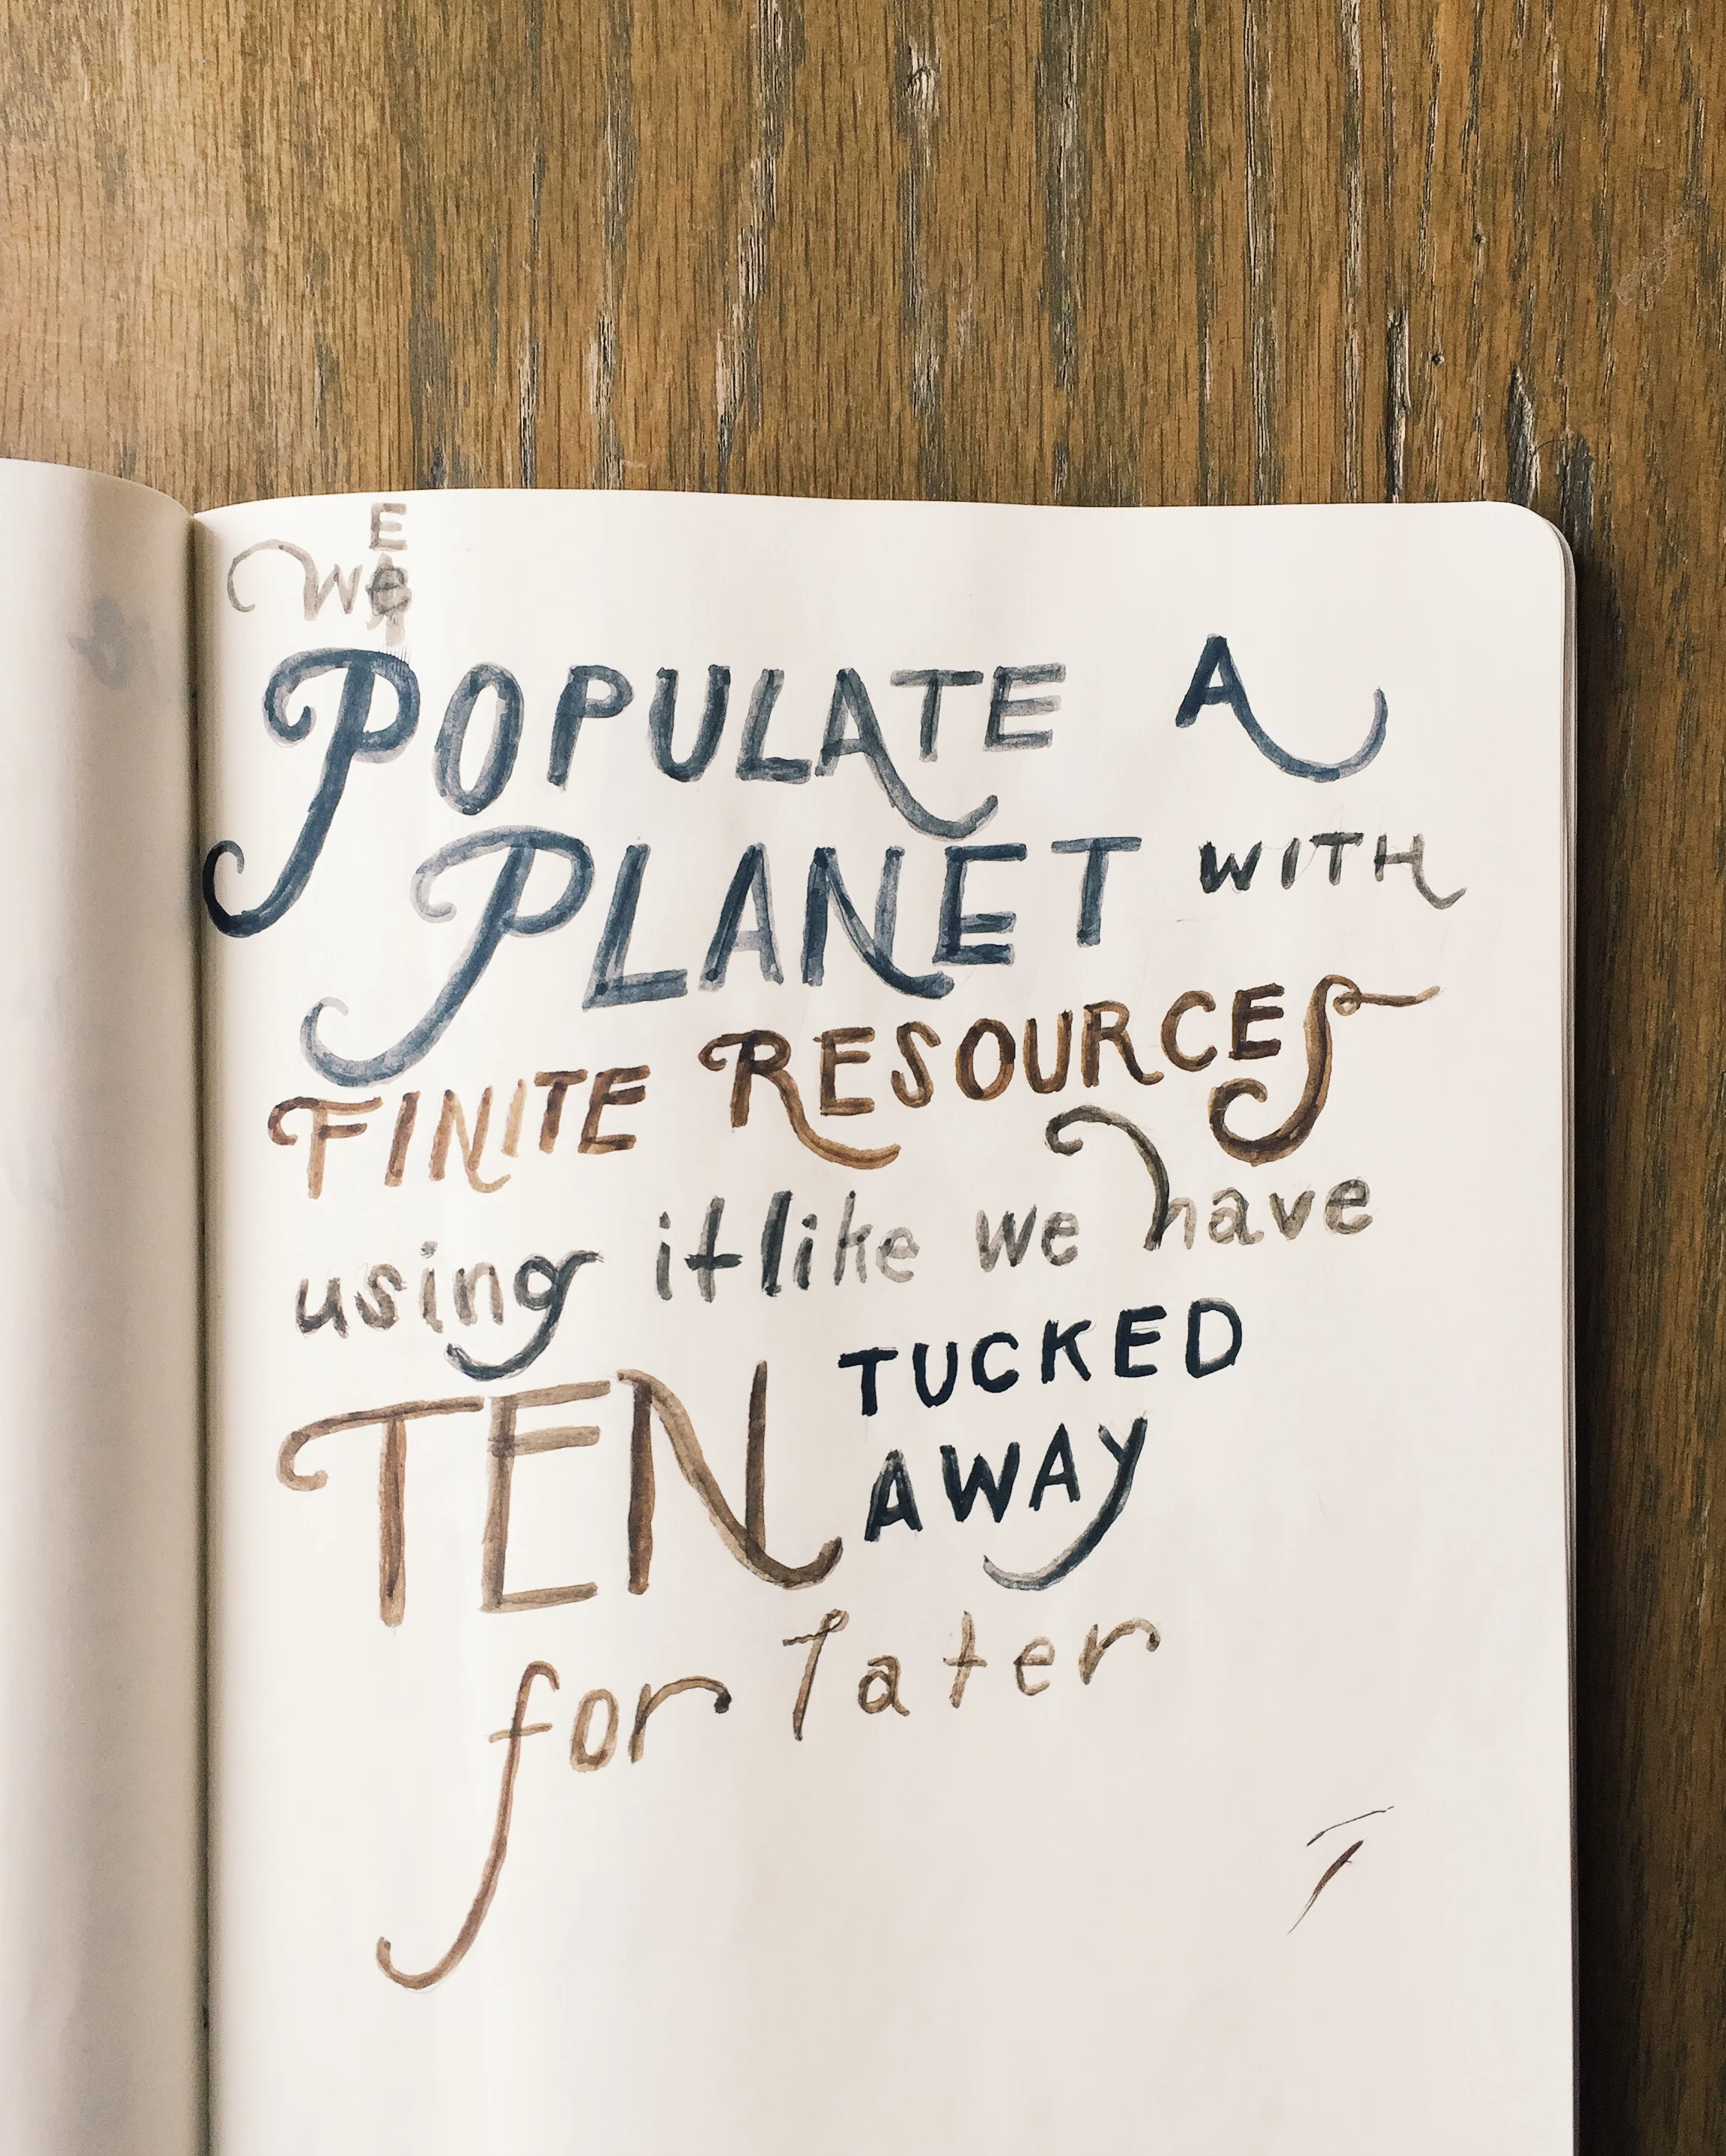 We
POPULATE A
PLANET WITH
FINITE RESOURCES
using it like we have
TEN TUCKED
AWAY
for later